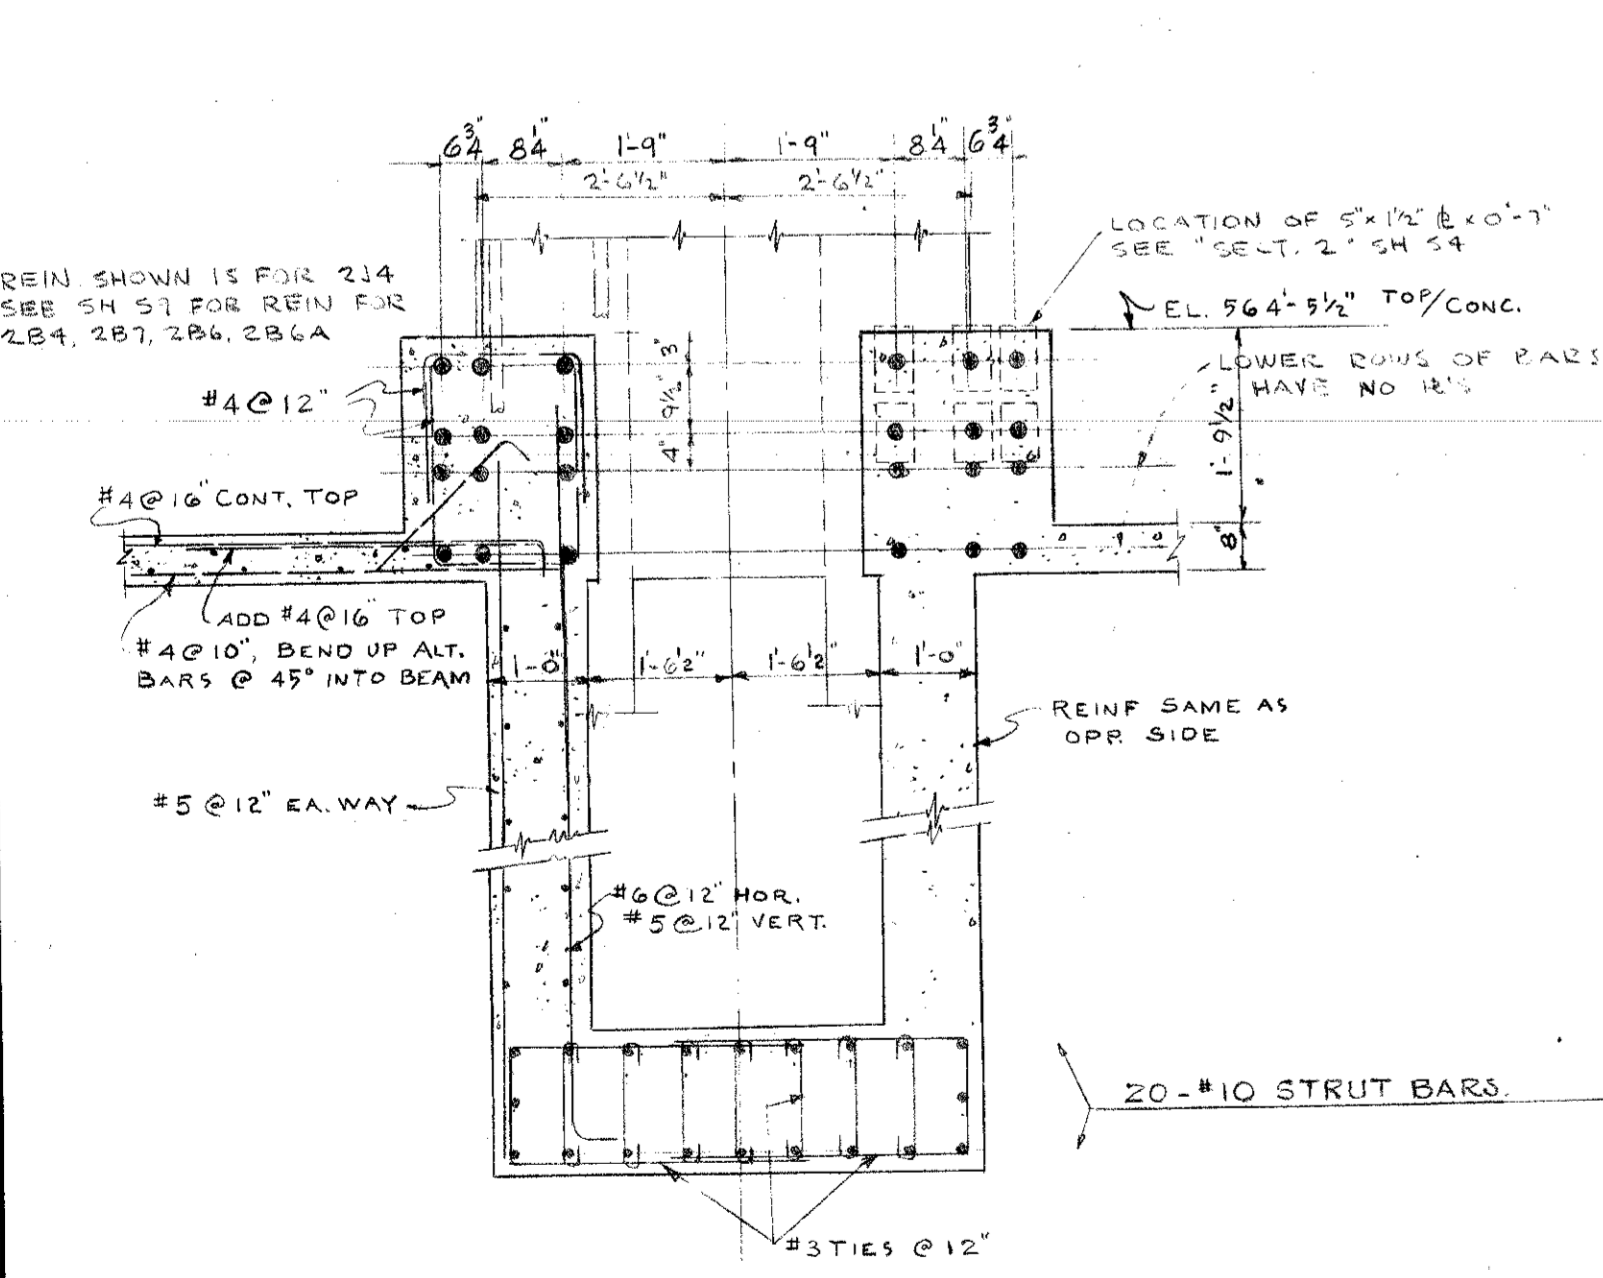 6 3/4" 8 1/4" 1'-9" 1'-9" 8 1/4" 6 3/4"
2'-6 1/2" 2'-6 1/2"
LOCATION OF 5"x 1 1/2" ⅊ x 0'-7"
SEE "SECT. 2" SH S4
REIN. SHOWN IS FOR 2J4
SEE SH S9 FOR REIN FOR
2B4, 2B7, 2B6, 2B6A
EL. 564'-5 1/2" TOP/CONC.
3"
LOWER ROWS OF BARS
HAVE NO ⅊'S
#4@12"
9 1/2"
4"
1'-9 1/2"
#4@16" CONT. TOP
8"
ADD #4@16" TOP
#4@10", BEND UP ALT.
BARS @ 45° INTO BEAM
1'-0" 1'-6 1/2" 1'-6 1/2" 1'-0"
REINF SAME AS
OPP. SIDE
#5 @12" EA. WAY
#6@12" HOR.
#5@12" VERT.
20-#10 STRUT BARS.
#3 TIES @12"